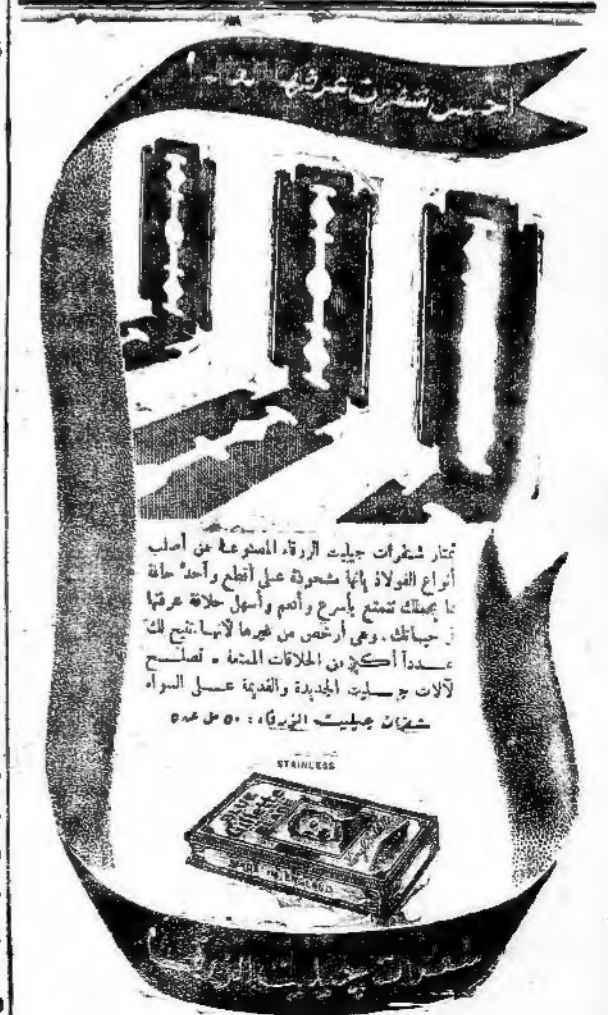 أحسن شفرات عرفتها
تمتاز شفرات جيليت الزرقاء المصنوعة من أصلب
أنواع الفولاذ بأنها مشحوذة على أقطع وأحد حافة
مما يجعلك تتمتع بأسرع وأنعم وأسهل حلاقة عرفتها
في حياتك. وهي أرخص من غيرها لأنها تتيح لك
عدداً أكبر من الحلاقات الممتعة - تصلح
لآلات جيليت الجديدة والقديمة على السواء
شفرات جيليت الزرقاء: ٥٠ مل
STAINLESS
BLUE
Gillette
BLADES
MADE IN ENGLAND
شفرات جيليت الزرقاء